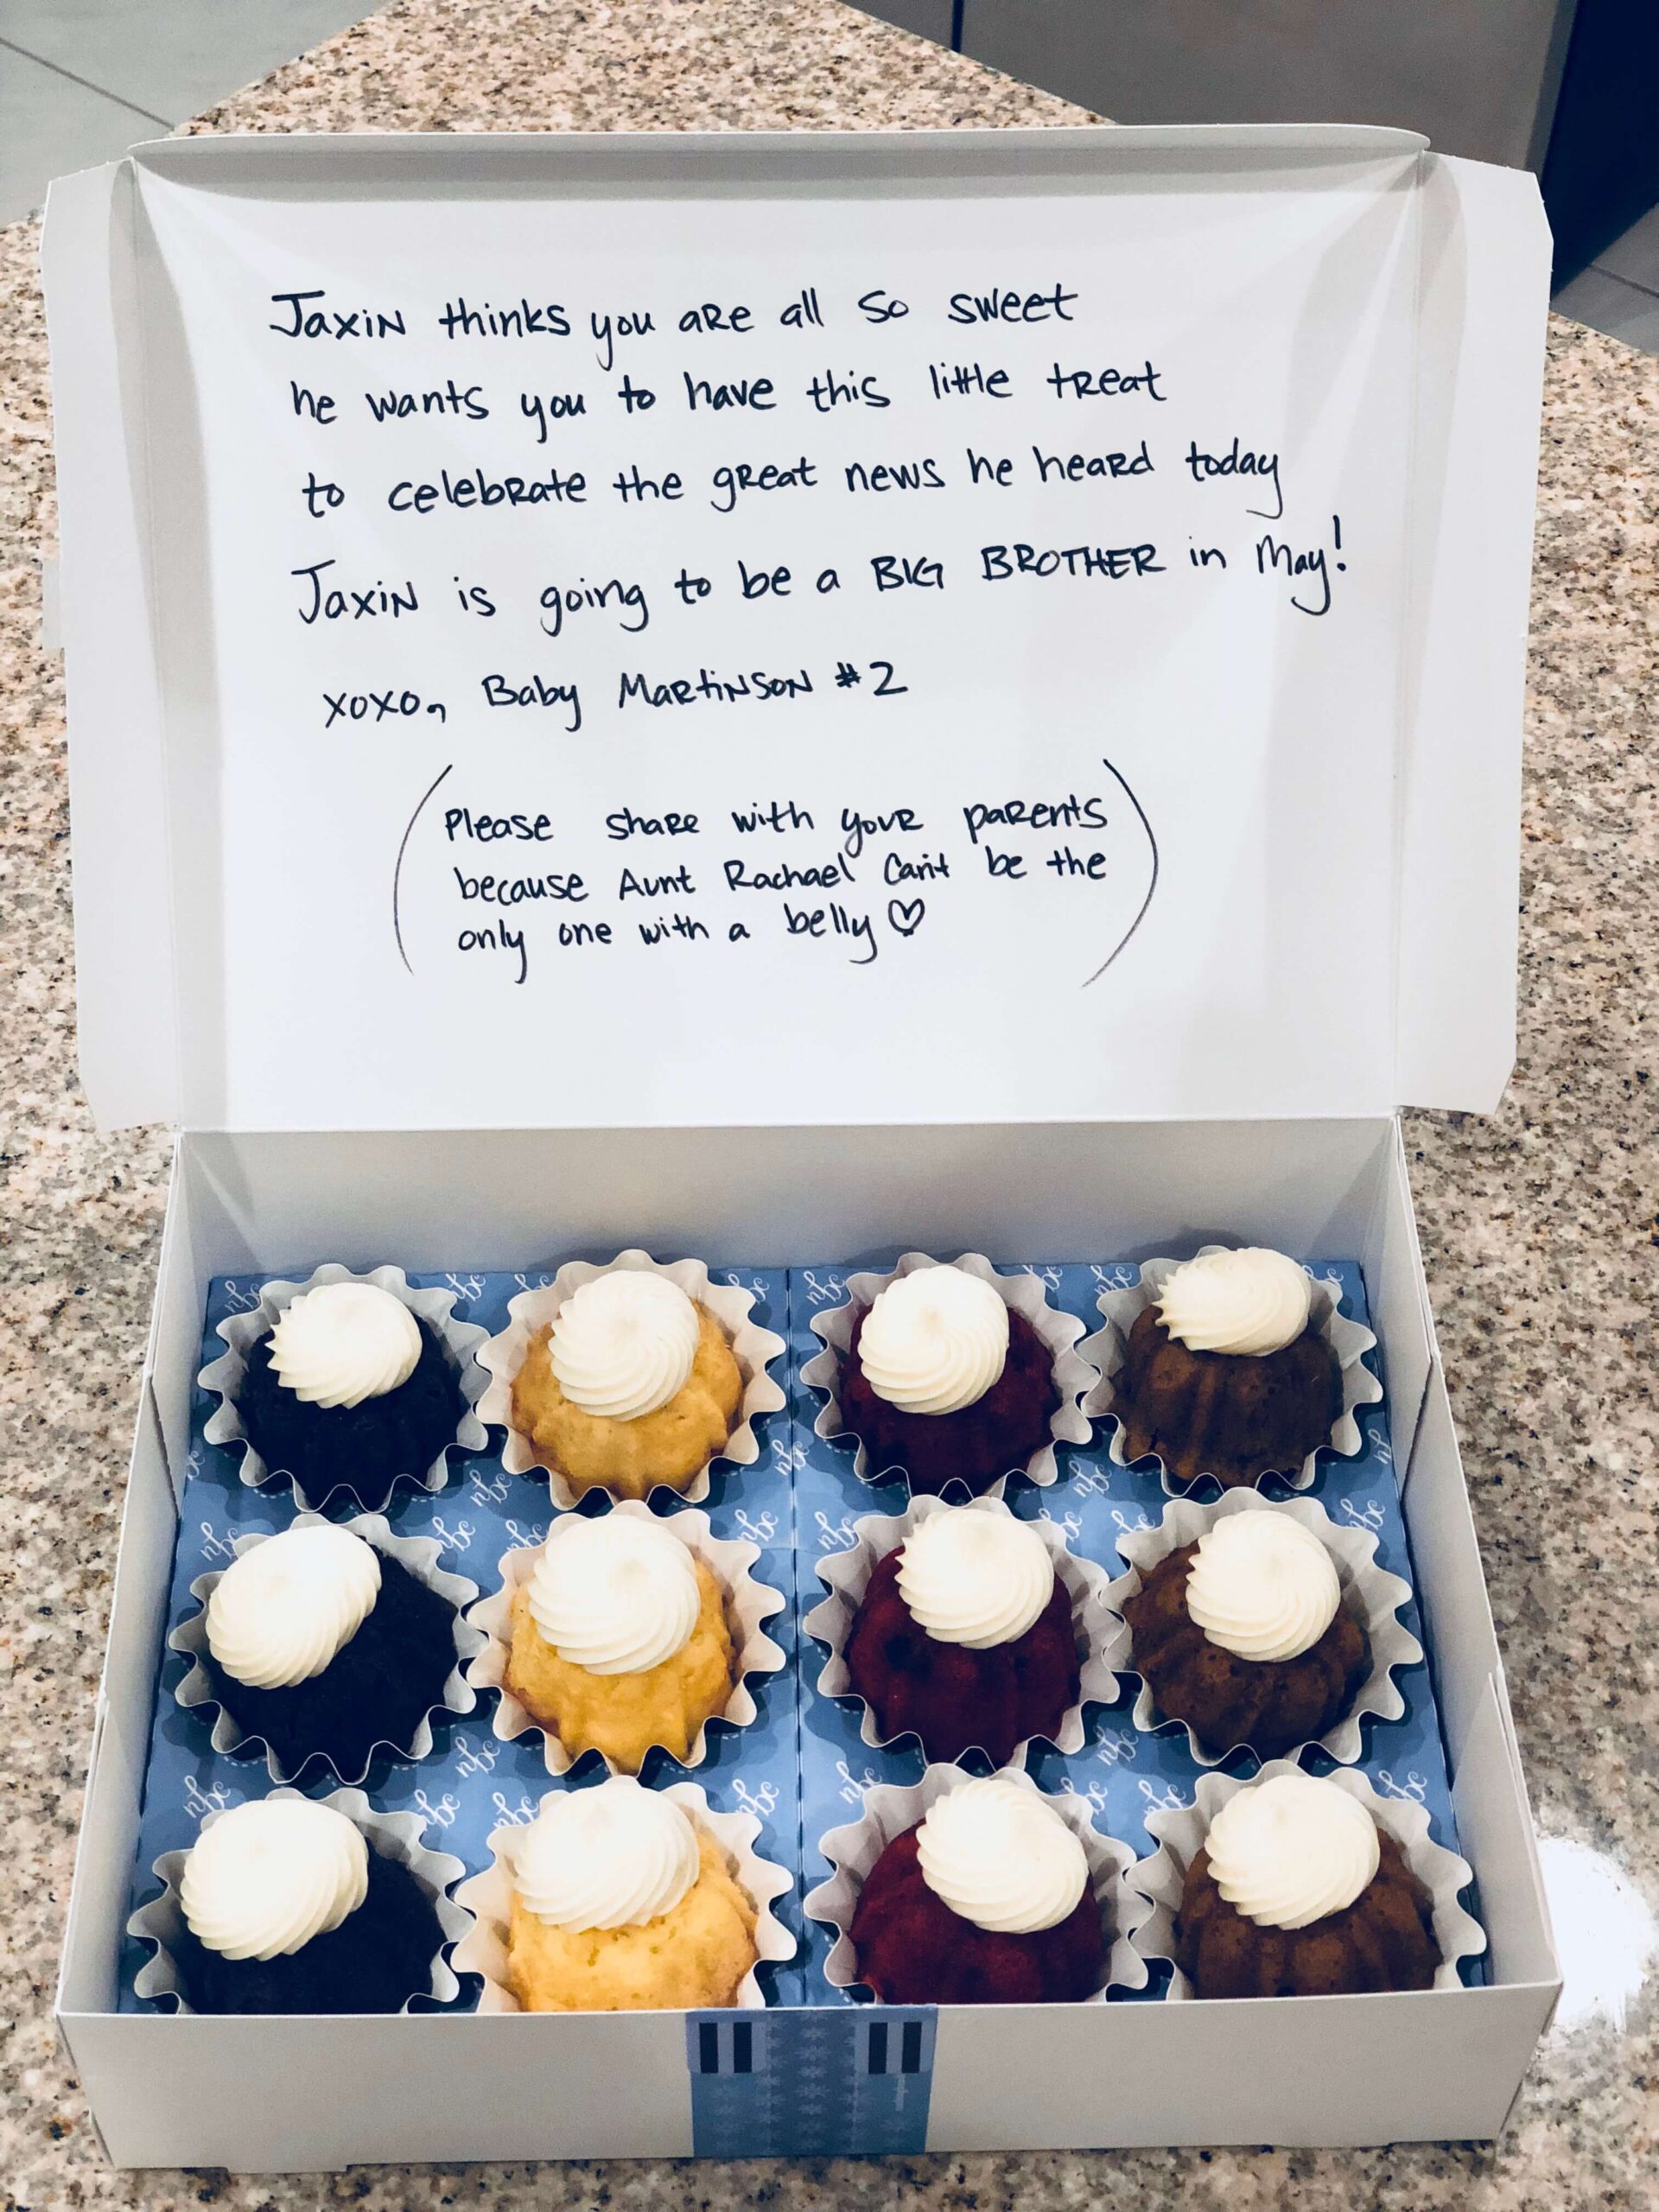 Jaxin thinks you are all so sweet
he wants you to have this little treat
to celebrate the great news he heard today
Jaxin is going to be a BIG BROTHER in May!
xoxo, Baby Martinson #2
(Please share with your parents
because Aunt Rachael can't be the
only one with a belly ♡)
nbc